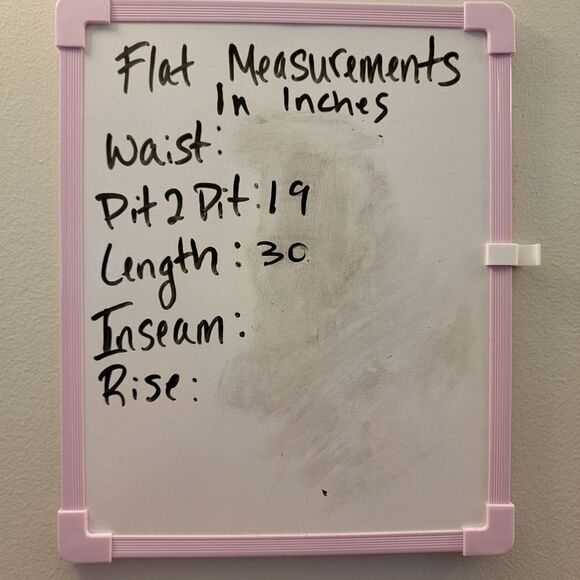 Flat Measurements
In Inches
Waist:
Pit2Pit:19
Length:30
Inseam:
Rise: